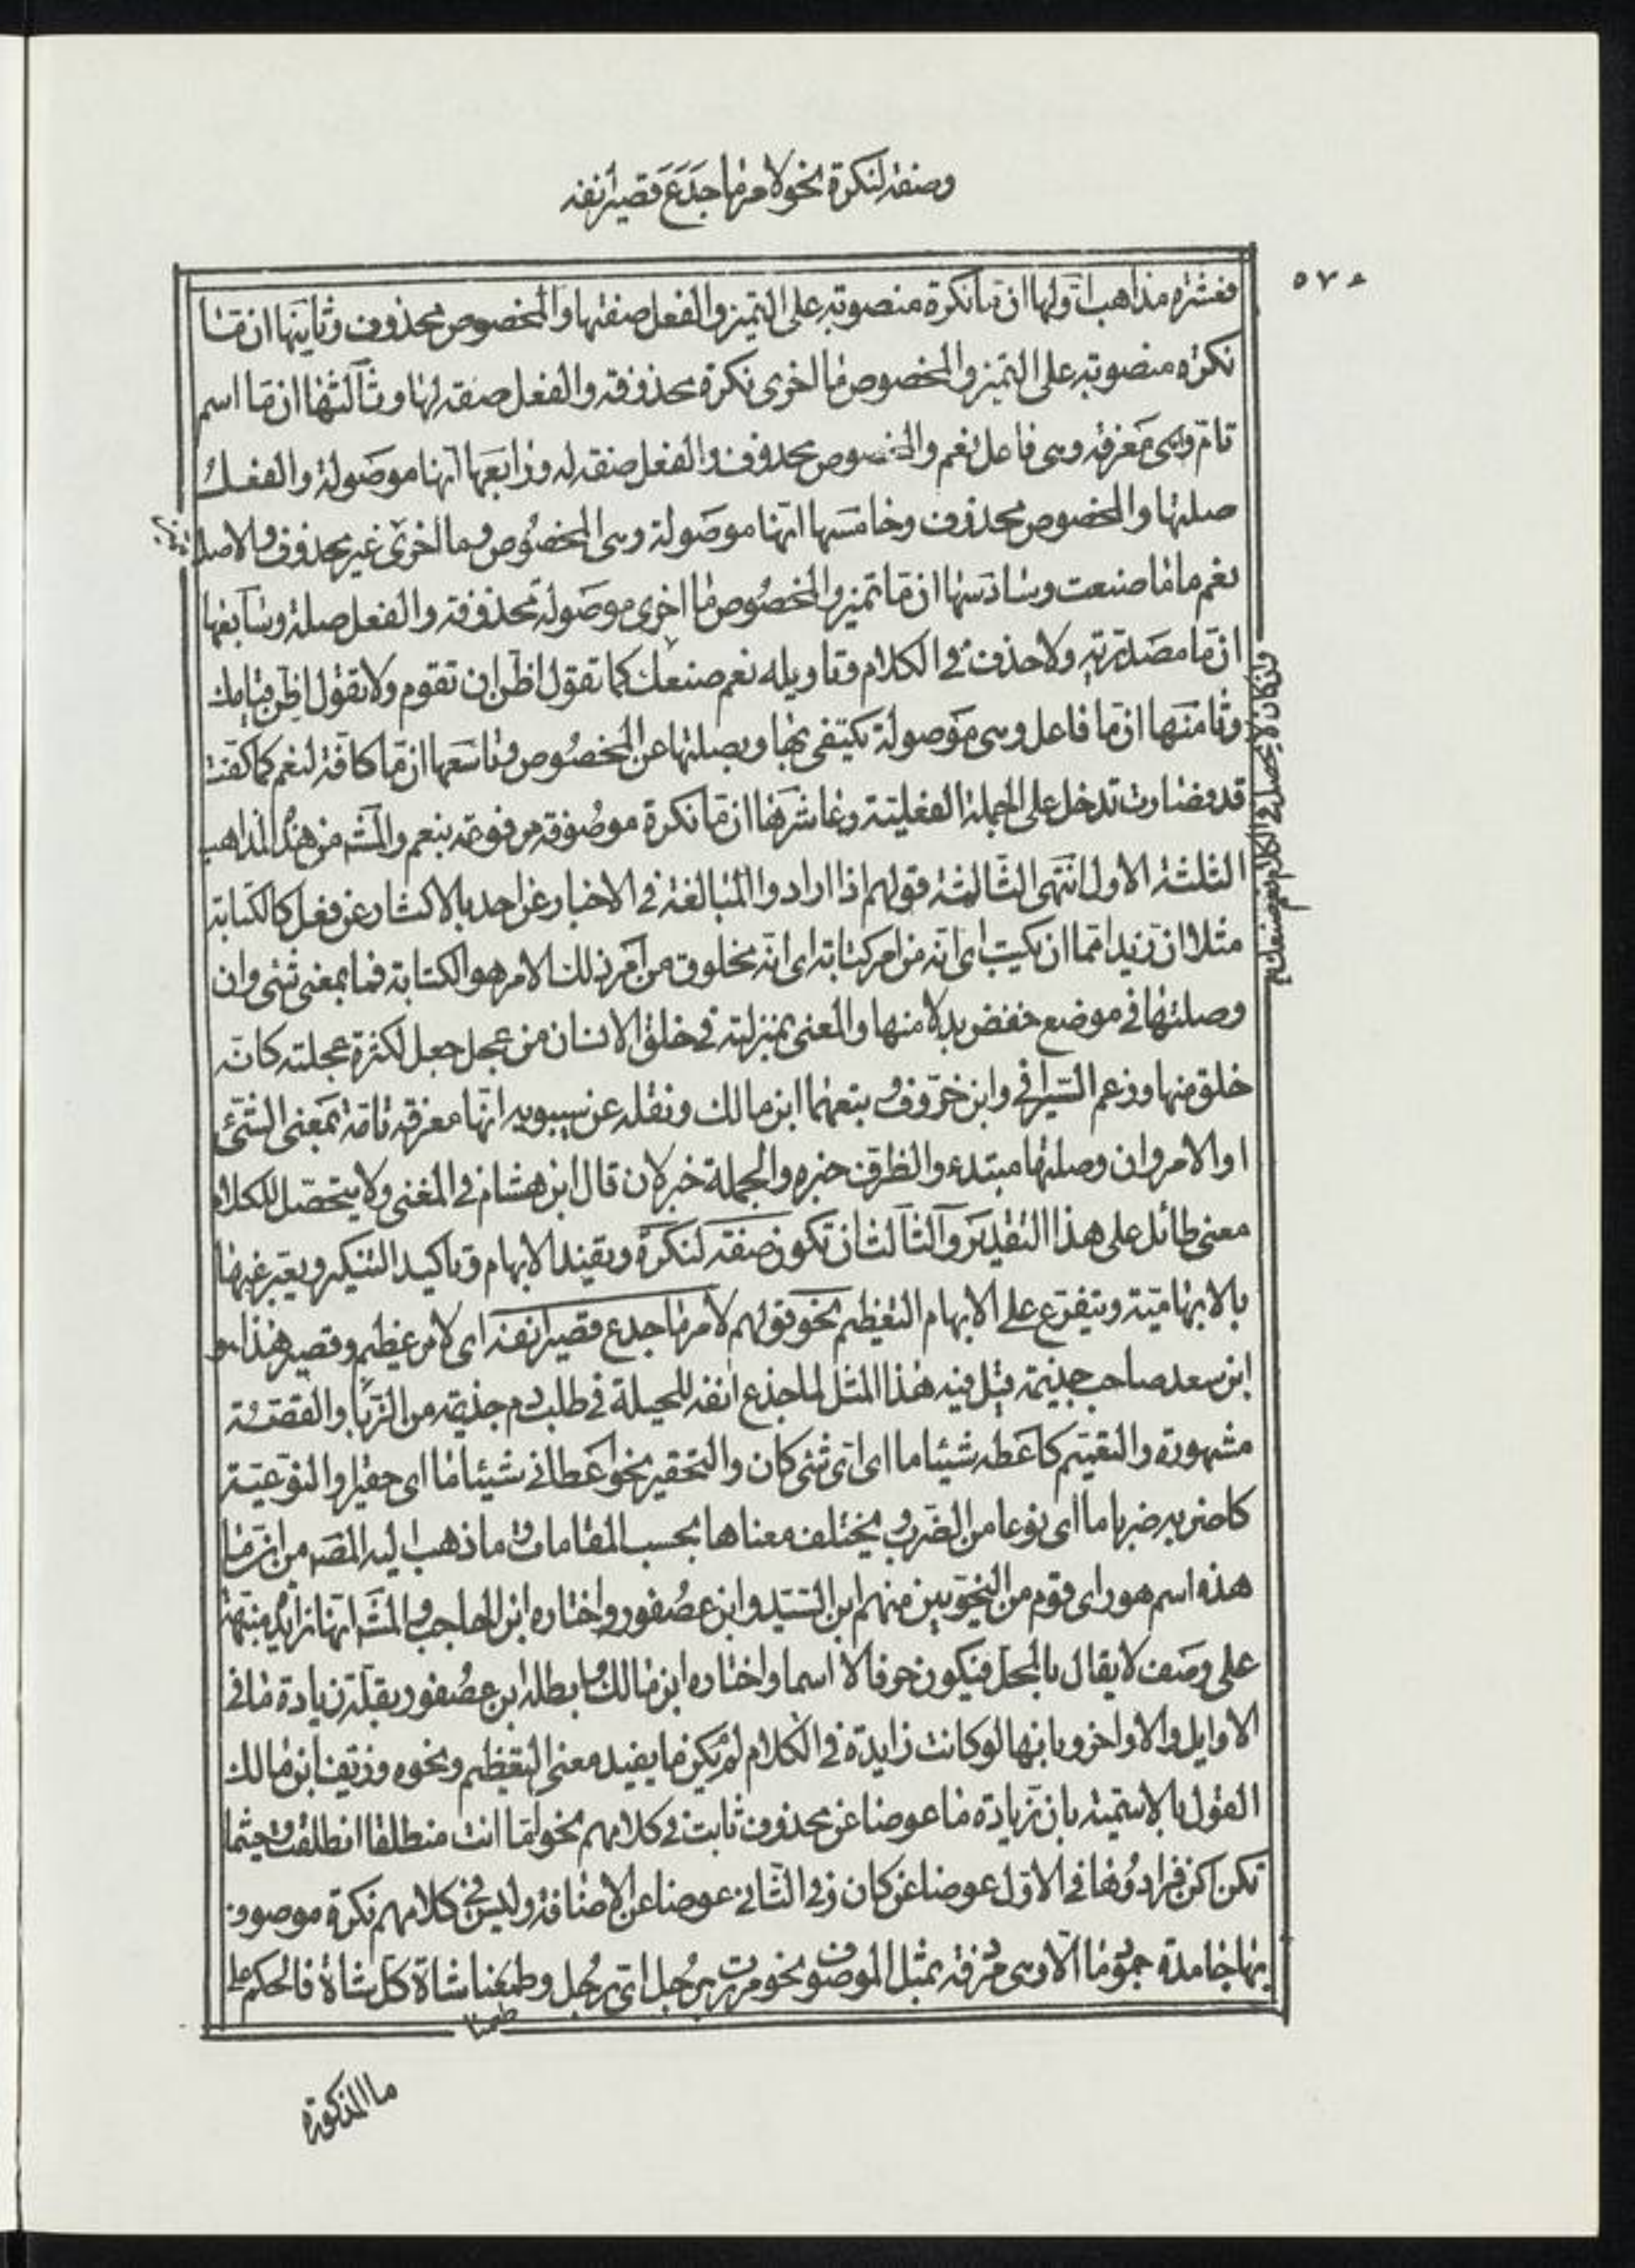 وصفة لنكرة نحو لامر ما جَدَعَ قصير انفه
٥٧٤
فعشرة مذاهب اولها ان ما نكرة منصوبة على التميز والفعل صفتها والمخصوص محذوف وثانيها ان ما
نكرة منصوبة على التميز والمخصوص ما اخرى نكرة محذوفة والفعل صفة لها وثالثها ان ما اسم
تام وهى معرفة وهى فاعل نعم والمخصوص محذوف والفعل صفة له ورابعها انها موصولة والفعل
صلتها والمخصوص محذوف وخامسها انها موصولة وهى المخصوص وما اخرى غير محذوف والاصل
نعم ما ما صنعت وسادسها ان ما تميز والمخصوص ما اخرى موصولة محذوفة والفعل صلة وسابعها
ان ما مصدرية ولا حذف فى الكلام وتاويله نعم صنعك كما تقول اظن ان تقوم ولا تقول اظن قيامك
وان كان لا يحصل فى الكلام نعم صنعك
وثامنها ان ما فاعل وهى موصولة يكتفى بها وبصلتها عن المخصوص وتاسعها ان ما كافة لنعم كما كفت
قد فصارت تدخل على الجملة الفعلية وعاشرها ان ما نكرة موصوفة مرفوعة بنعم والمشه من هذه المذاهب
الثلثة الاول انتهى الثالثة قولهم اذا ارادوا المبالغة فى الاخبار عن احد بالاكثار عن فعل كالكتابة
مثلا ان زيدا مما ان يكتب اى انه من امر كتابة اى انه مخلوق من امر ذلك الامر هو الكتابة فما بمعنى شئ وان
وصلتها فى موضع خفض بدلا منها والمعنى بمنزلته فى خلق الانسان من عجل جعل لكثرة عجلته كانه
خلق منها وزعم السيرافى وابن خروف وتبعهما ابن مالك ونقله عن سيبويه انها معرفة تامة بمعنى الشئ
او الامر وان وصلتها مبتدء والظرف خبره والجملة خبر لان قال ابن هشام فى المغنى ولا يتحصل للكلام
معنى طائل على هذا التقدير والثالث ان تكون صفة لنكرة ويفيد الابهام وتاكيد التنكير ويعبر عنها
بالابهامية ويتفرع على الابهام التعظيم نحو قولهم لامر ما جدع قصير انفه اى لامر عظيم وقصير هذا هو
ابن سعد صاحب جذيمة قيل فيه هذا المثل لما جذع انفه للحيلة فى طلب دم جذيمة من الزبا والقصة
مشهورة والتعميم كاعطه شيئا ما اى اى شئ كان والتحقير نحو اعطانى شيئا ما اى حقيرا والنوعية
كاضربه ضربا ما اى نوعا من الضرب ويختلف معناها بحسب المقامات وما ذهب اليه المصه من ان ما
هذه اسم هو راى قوم من النحويين منهم ابن السيد وابن عصفور واختاره ابن الحاجب والمشه انها زايدة منبهة
على وصف لايقال بالمحل فيكون حرفا لا اسما واختاره ابن مالك وابطله ابن عصفور بقلة زيادة ما فى
الاوايل والاواخر وبانها لو كانت زايدة فى الكلام لم يكن ما يفيد معنى التعظيم ونحوه وزيف ابن مالك
القول بالاسمية بان زيادة ما عوضا عن محذوف ثابت فى كلامهم نحو اما انت منطلقا انطلقت وحيثما
تكن اكن فزادوها فى الاول عوضا عن كان وفى الثانى عوضا عن الاضافة وليس فى كلامهم نكرة موصوف
بها جامدة جمود ما الا وهى مردفة بمثل الموصوف نحو مررت برجل اى رجل وطعمنا شاة كل شاة فالحكم على
طعمنا
ما المذكورة